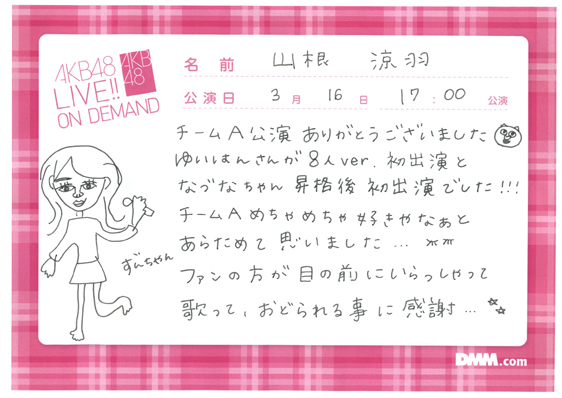 AKB48
LIVE!!
ON DEMAND
AKB
48
名 前 山根 涼羽
公演日 3月 16日 17:00 公演
チームA公演 ありがとうございました
ゆいはんさんが8人ver. 初出演と
なづなちゃん 昇格後 初出演でした!!!
チームA めちゃめちゃ 好きやなぁと
あらためて 思いました...
ファンの方が 目の前に いらっしゃって
歌って、おどられる事 に 感謝...
ずんちゃん
DMM.com